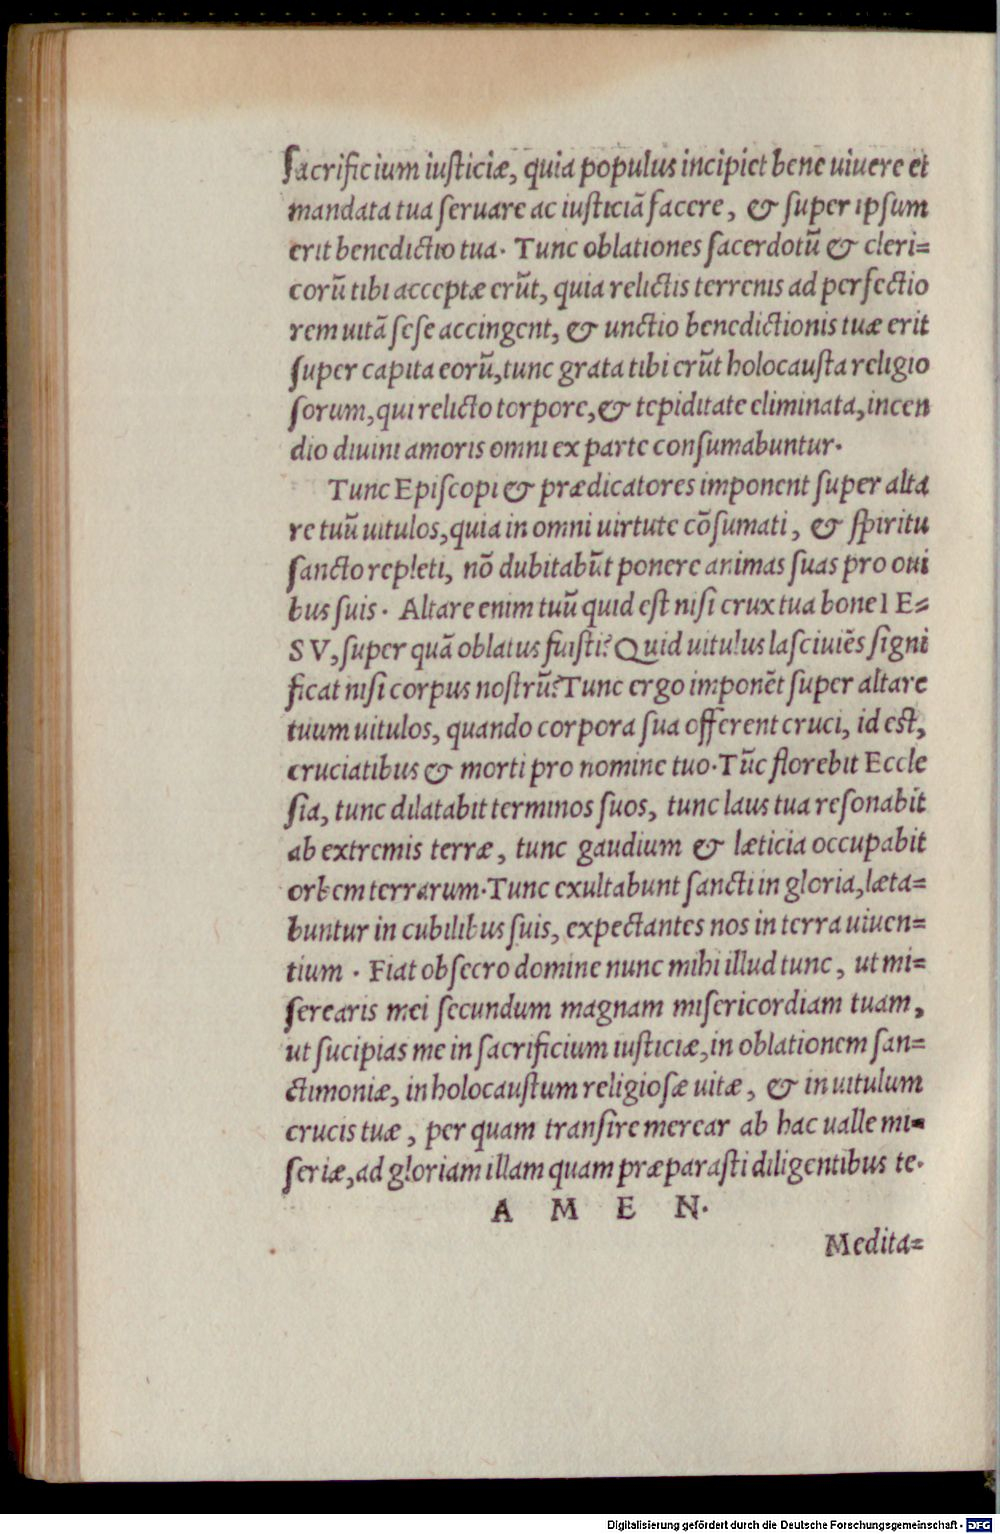 sacrificium iusticiæ, quia populus incipiet bene uiuere et
mandata tua seruare ac iusticiā facere, & super ipsum
erit benedictio tua. Tunc oblationes sacerdotū & cleri=
corū tibi acceptæ erūt, quia relictis terrenis ad perfectio
rem uitā sese accingent, & unctio benedictionis tuæ erit
super capita eorū, tunc grata tibi erūt holocausta religio
sorum, qui relicto torpore, & tepiditate eliminata, incen
dio diuini amoris omni ex parte consumabuntur.
Tunc Episcopi & prædicatores imponent super alta
re tuū uitulos, quia in omni uirtute cōsumati, & spiritu
sancto repleti, nō dubitabūt ponere animas suas pro oui
bus suis. Altare enim tuū quid est nisi crux tua bone I E=
S V, super quā oblatus fuisti? Quid uitulus lasciuiēs signi
ficat nisi corpus nostrū? Tunc ergo imponēt super altare
tuum uitulos, quando corpora sua offerent cruci, id est,
cruciatibus & morti pro nomine tuo. Tūc florebit Eccle
sia, tunc dilatabit terminos suos, tunc laus tua resonabit
ab extremis terræ, tunc gaudium & læticia occupabit
orbem terrarum. Tunc exultabunt sancti in gloria, læta=
buntur in cubilibus suis, expectantes nos in terra uiuen=
tium. Fiat obsecro domine nunc mihi illud tunc, ut mi=
serearis mei secundum magnam misericordiam tuam,
ut sucipias me in sacrificium iusticiæ, in oblationem san=
ctimoniæ, in holocaustum religiosæ uitæ, & in uitulum
crucis tuæ, per quam transire merear ab hac ualle mi=
seriæ, ad gloriam illam quam præparasti diligentibus te.
A M E N.
Medita=
Digitalisierung gefördert durch die Deutsche Forschungsgemeinschaft - DFG